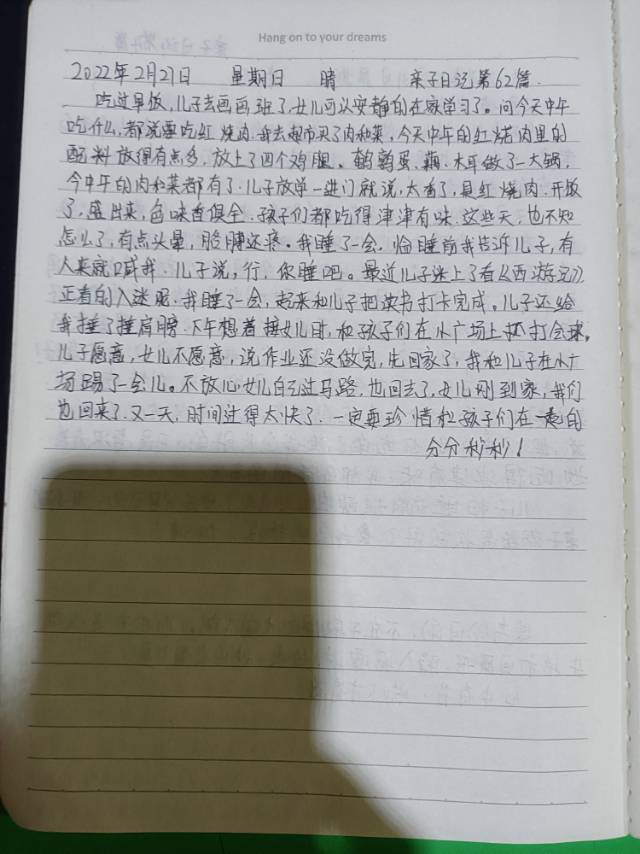 Hang on to your dreams
2022年2月27日 星期日 晴 亲子日记第62篇.
吃过早饭,儿子去画画班了,女儿可以安静的在家学习了。问今天中午
吃什么,都说要吃红烧肉.我去超市买了肉和菜,今天中午的红烧肉里的
配料放得有点多,放上了四个鸡腿、鹌鹑蛋、藕、木耳做了一大锅,
今中午的肉和菜都有了.儿子放学一进门就说,太香了,是红烧肉.开饭
了,盛出来,色味香俱全.孩子们都吃得津津有味.这些天,也不知
怎么了,有点头晕,胳膊还疼。我睡了一会.临睡前我告诉儿子,有
人来就喊我.儿子说,行,你睡吧。最近儿子迷上了看《西游记》
正看的入迷呢.我睡了一会,起来和儿子把读书打卡完成。儿子还给
我捶了捶肩膀.下午想着接女儿时,和孩子们在小广场上玩打会球.
儿子愿意,女儿不愿意,说作业还没做完,先回家了,我和儿子在小广
场踢了一会儿。不放心女儿自己过马路,也回去了,女儿刚到家,我们
也回来了.又一天,时间过得太快了.一定要珍惜和孩子们在一起的
分分秒秒!